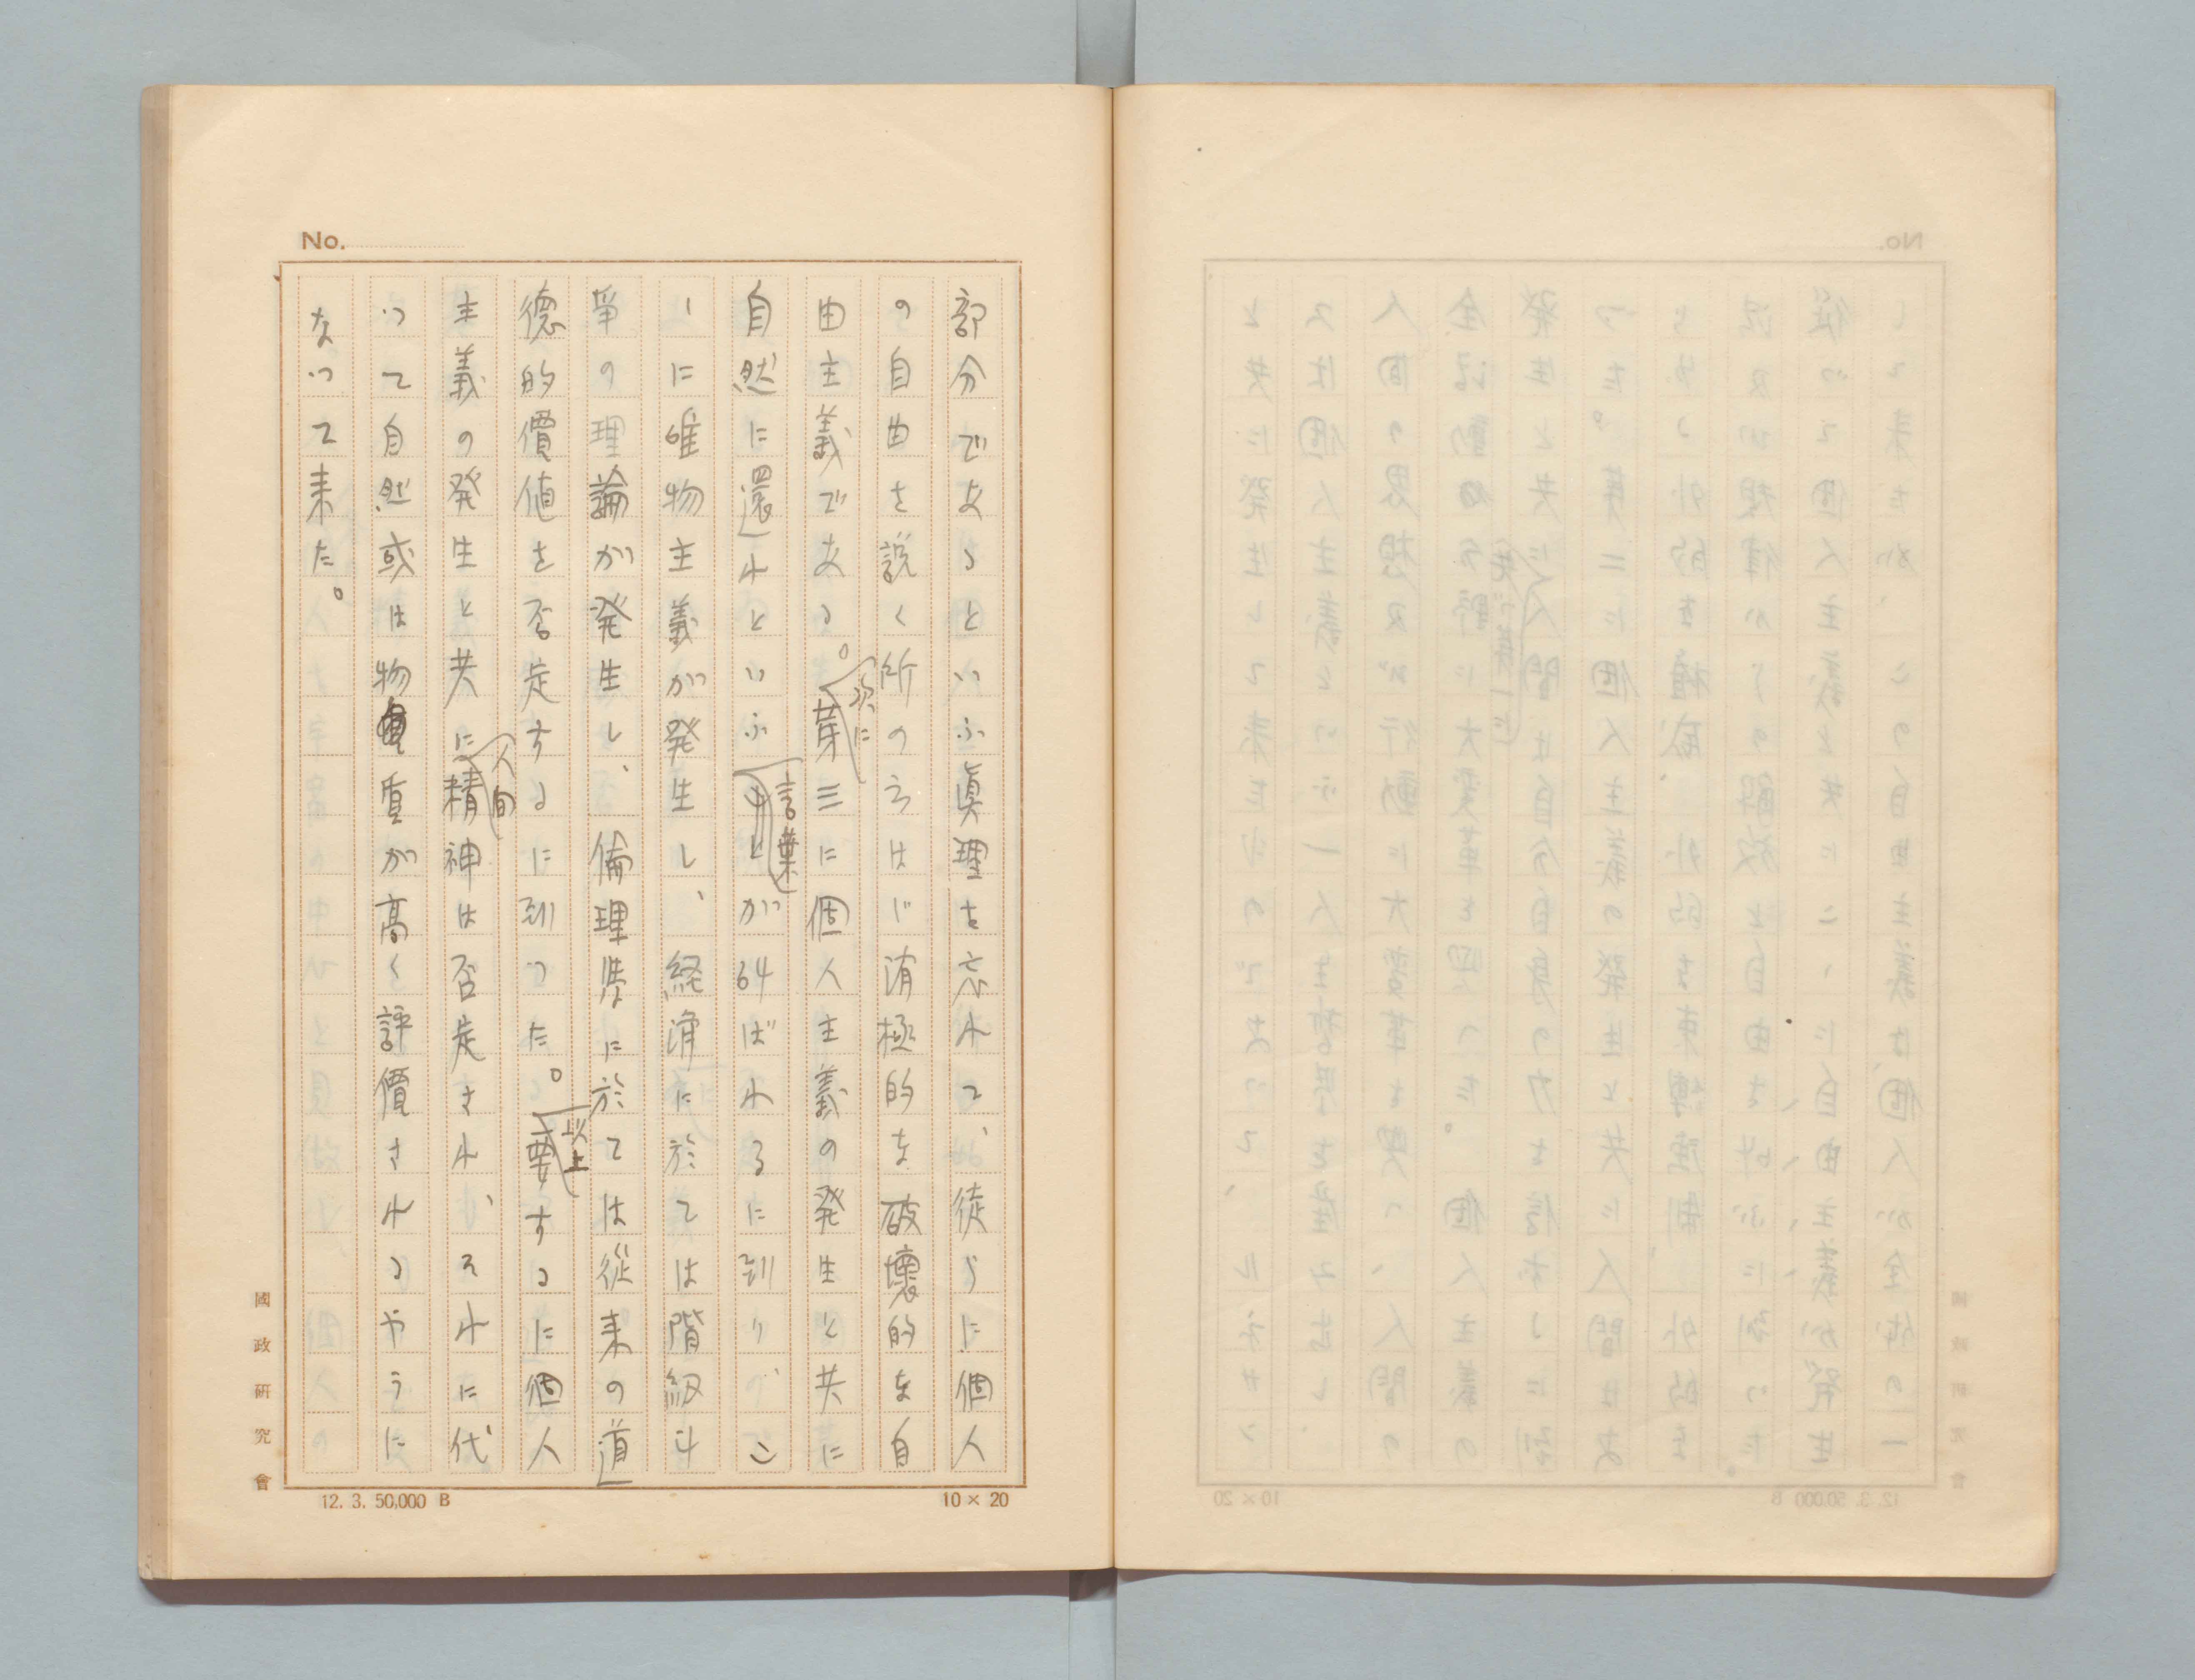 No.
部分であるといふ眞理を忘れて、徒らに個人
の自由を説く所の云はゞ消極的な破壊的な自
由主義である。次に芽三に個人主義の発生と共に
自然に還れといふ言葉ことが叫ばれるに到り、こ
ゝに唯物主義が発生し、経済に於ては階級斗
爭の理論が発生し、倫理学に於ては従来の道
德的價値を否定するに到つた。以上要するに個人
主義の発生と共に人間精神は否定され、それに代
つて自然或は物質が高く評價されるやうに
なつて来た。
國政研究會
12. 3. 50,000 B
10×20